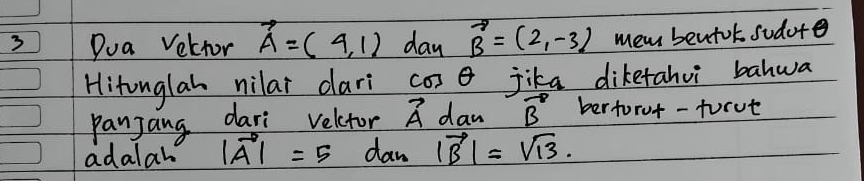 3 Dua Vektor A⃗ = (4,1) dan B⃗ = (2,-3) membentuk sudut θ
Hitunglah nilai dari cos θ jika diketahui bahwa
panjang dari Vektor A⃗ dan B⃗ berturut-turut
adalah |A⃗| = 5 dan |B⃗| = √13.